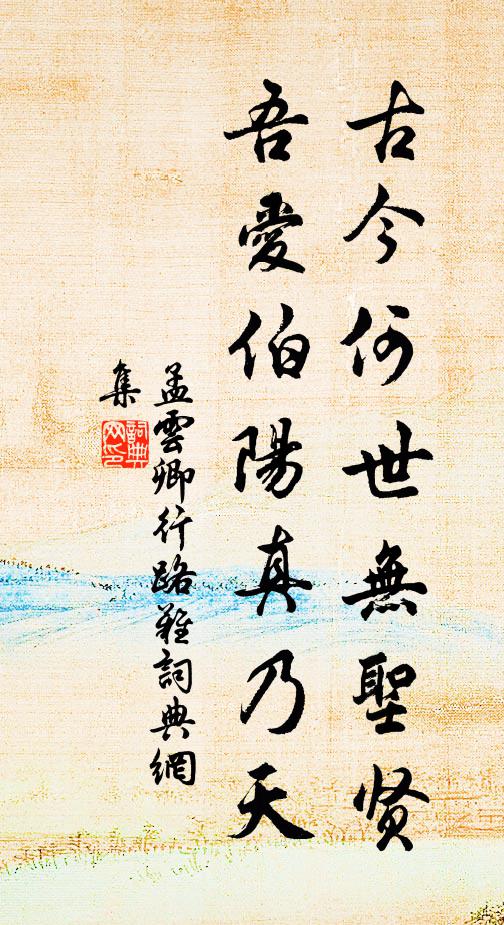 古今何世無聖贤
吾愛伯陽真乃天
孟雲卿行路難詞典網
集
詞典網印